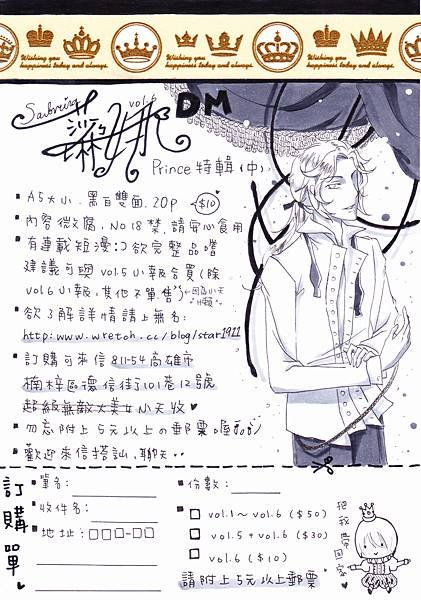 Wishing you happiness today and always.
Wishing you happiness today and always.
Wishing you happiness today and always.
vol.6
DM
Prince 特輯(中).
A5大小.黑白雙面.20P $10
內容微腐,No 18禁,請安心食用
有連載短漫:)欲完整品嚐
建議可與vol.5小報合買(除
vol.6小報,其他不單售)
欲了解詳情請上無名:
http://www.wretch.cc/blog/star1911
訂購可來信 811-54 高雄市
楠梓區環信街101巷12號
超級無敵大美女小天收♥
勿忘附上5元以上の郵票喔
歡迎來信搭訕,聊天..
訂購單
筆名:
收件名:
地址:□□□-□□
份數:
□ vol.1~vol.6 ($50)
□ vol.5+vol.6 ($30)
□ vol.6 ($10)
請附上5元以上郵票
把我帶回家♥